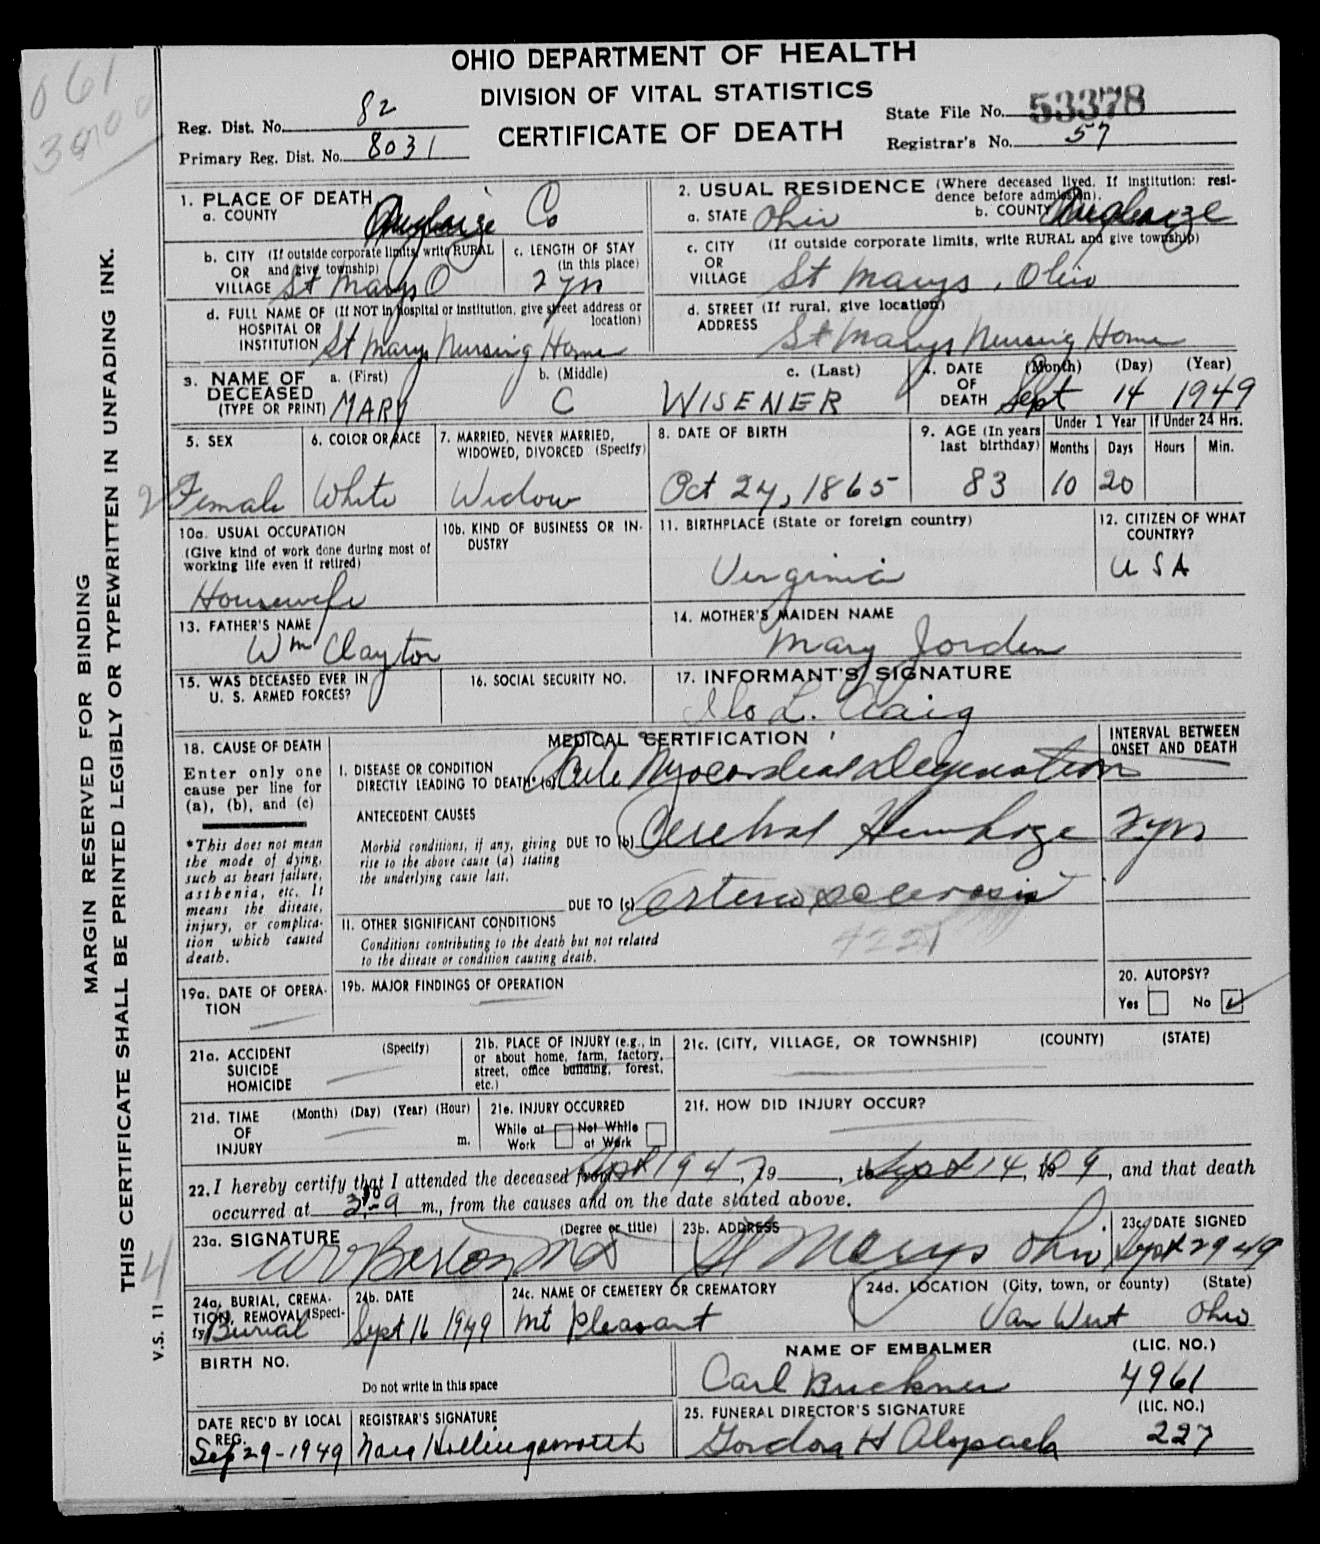 OHIO DEPARTMENT OF HEALTH
DIVISION OF VITAL STATISTICS
CERTIFICATE OF DEATH
Reg. Dist. No. 82
Primary Reg. Dist. No. 8031
State File No. 53378
Registrar's No. 57
061
1. PLACE OF DEATH
a. COUNTY Auglaize Co
2. USUAL RESIDENCE (Where deceased lived. If institution: resi-
dence before admission).
a. STATE Ohio b. COUNTY Auglaize
b. CITY (If outside corporate limits, write RURAL
OR and give township)
VILLAGE St Marys O
c. LENGTH OF STAY
(in this place)
2 yrs
c. CITY (If outside corporate limits, write RURAL and give township)
OR
VILLAGE St Marys, Ohio
d. FULL NAME OF (If NOT in hospital or institution, give street address or
HOSPITAL OR location)
INSTITUTION St Marys Nursing Home
d. STREET (If rural, give location)
ADDRESS St Marys Nursing Home
3. NAME OF a. (First) b. (Middle) c. (Last)
DECEASED
(TYPE OR PRINT) MARY C WISENER
4. DATE (Month) (Day) (Year)
OF
DEATH Sept 14 1949
5. SEX
Female
6. COLOR OR RACE
White
7. MARRIED, NEVER MARRIED,
WIDOWED, DIVORCED (Specify)
Widow
8. DATE OF BIRTH
Oct 24, 1865
9. AGE (In years
last birthday)
83
Under 1 Year
Months Days
10 20
If Under 24 Hrs.
Hours Min.
10a. USUAL OCCUPATION
(Give kind of work done during most of
working life even if retired)
Housewife
10b. KIND OF BUSINESS OR IN-
DUSTRY
11. BIRTHPLACE (State or foreign country)
Virginia
12. CITIZEN OF WHAT
COUNTRY?
USA
13. FATHER'S NAME
Wm Clayton
14. MOTHER'S MAIDEN NAME
Mary Jorden
15. WAS DECEASED EVER IN
U. S. ARMED FORCES?
16. SOCIAL SECURITY NO.
17. INFORMANT'S SIGNATURE
Ilo L. Craig
18. CAUSE OF DEATH
Enter only one
cause per line for
(a), (b), and (c)
*This does not mean
the mode of dying,
such as heart failure,
asthenia, etc. It
means the disease,
injury, or complica-
tion which caused
death.
MEDICAL CERTIFICATION
INTERVAL BETWEEN
ONSET AND DEATH
I. DISEASE OR CONDITION
DIRECTLY LEADING TO DEATH* (a) Myocardial Degeneration
ANTECEDENT CAUSES
Morbid conditions, if any, giving
rise to the above cause (a) stating
the underlying cause last.
DUE TO (b) Cerebral Hemorhage 2 yrs
DUE TO (c) Arteriosclerosis
II. OTHER SIGNIFICANT CONDITIONS
Conditions contributing to the death but not related
to the disease or condition causing death.
4221
19a. DATE OF OPERA-
TION
19b. MAJOR FINDINGS OF OPERATION
20. AUTOPSY?
Yes No ✓
21a. ACCIDENT (Specify)
SUICIDE
HOMICIDE
21b. PLACE OF INJURY (e.g., in
or about home, farm, factory,
street, office building, forest,
etc.)
21c. (CITY, VILLAGE, OR TOWNSHIP) (COUNTY) (STATE)
21d. TIME (Month) (Day) (Year) (Hour)
OF
INJURY m.
21e. INJURY OCCURRED
While at Not While
Work at Work
21f. HOW DID INJURY OCCUR?
22. I hereby certify that I attended the deceased from Sept 1947, 19, to Sept 14, 19, and that death
occurred at m., from the causes and on the date stated above.
23a. SIGNATURE (Degree or title)
23b. ADDRESS
St Marys Ohio
23c. DATE SIGNED
Sept 29 49
24a. BURIAL, CREMA-
TION, REMOVAL (Speci-
fy) Burial
24b. DATE
Sept 16 1949
24c. NAME OF CEMETERY OR CREMATORY
Mt Pleasant
24d. LOCATION (City, town, or county) (State)
Van Wert Ohio
BIRTH NO.
Do not write in this space
NAME OF EMBALMER (LIC. NO.)
Carl Buckner 4961
DATE REC'D BY LOCAL
REG.
Sep 29-1949
REGISTRAR'S SIGNATURE
Nora Hollingsworth
25. FUNERAL DIRECTOR'S SIGNATURE (LIC. NO.)
Gordon H Alspach 227
MARGIN RESERVED FOR BINDING
THIS CERTIFICATE SHALL BE PRINTED LEGIBLY OR TYPEWRITTEN IN UNFADING INK.
V.S. 11